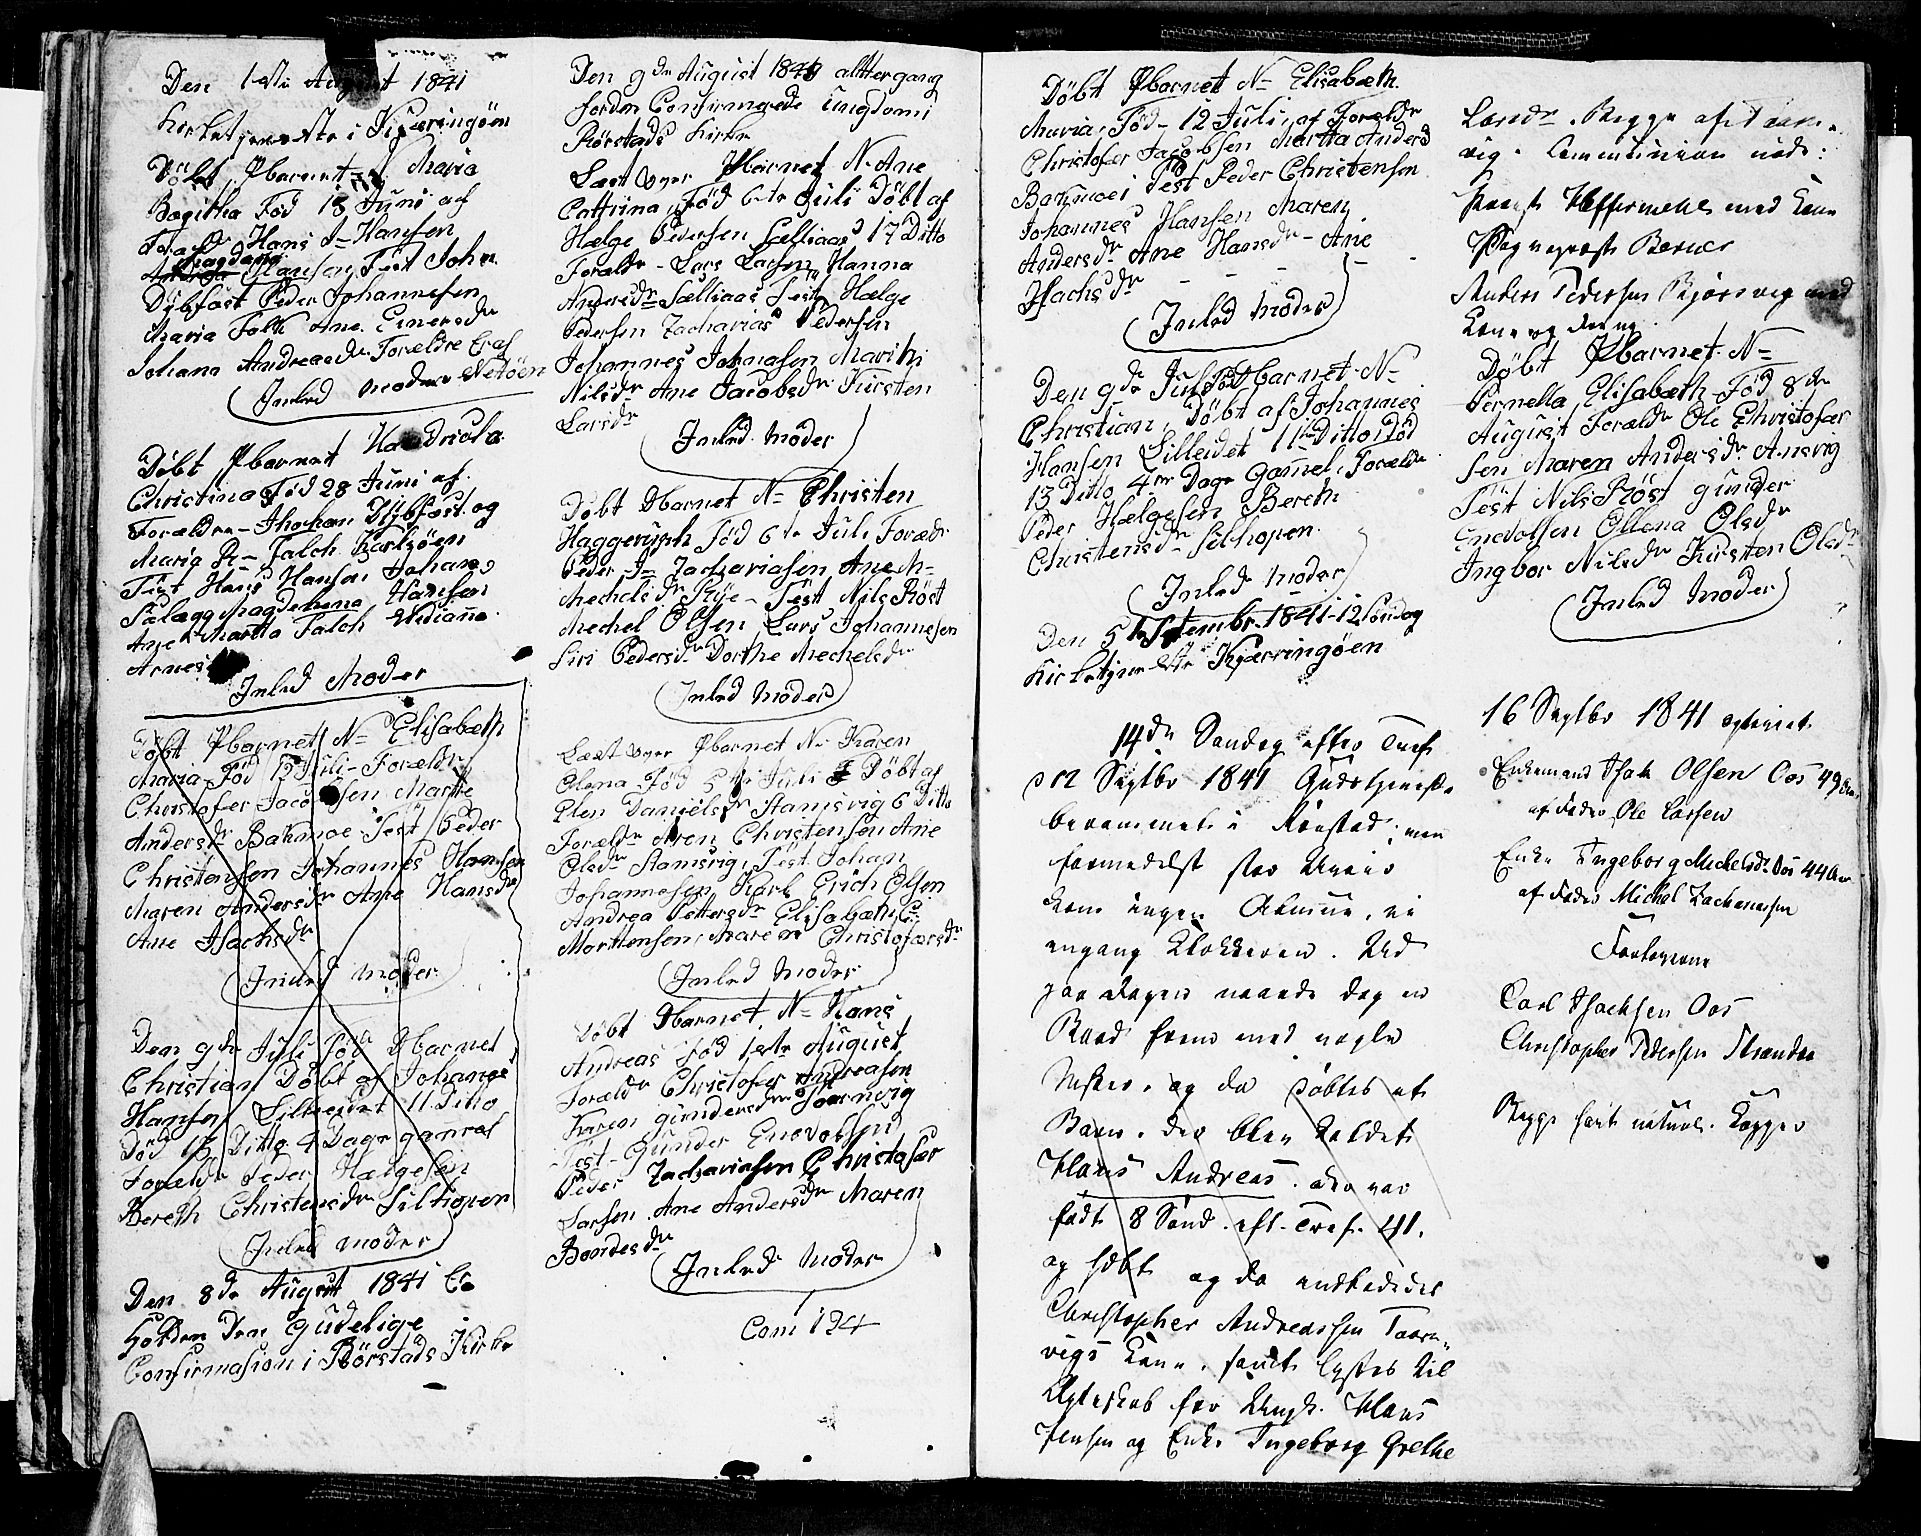 Den 1ste August 1841
Kirketjeneste i Kjæringöen
Döbt Pbarnet N Maria
Bagitha Föd 18 Juni af
Foræld Hans J= Hansen
Magdana
Hansen Test John
Dÿbfast Peder Johannesen
Maria Falk Ane Einersdr
Johana Andreasdr Forældre Eras
Inled moder Netöen
Döbt Pbarnet Handricka
Christina Föd 28 Juni af
Forældre - Jhochan Dÿbfast og
Marig R= Falch Karlsöen
Test Hans Hansen Johanes
Sælægg Magdelena Hansen
Ane Martta Falch Widiana
Arnes
Inled Moder
Döbt Pbarnet N= Elisabæth
Maria Föd 12 Juli - Foræld
Christofer Jacobsen Martte
Andersdr Bakmoe Test Peder
Christensen Johannes Hansen
Maren Andersdr Ane Hansdr
Ane Jsachsdr
Inled Moder
Den 9de Juli Föd Dbarnet
Christian Döbt af Johanes
Hansen Lilleeidet 11 Ditto
Död 13 Ditto 4 Dage gamel
Foreldr Peder Hælgesen
Bereth Christensdr Silhopen
Inled moder
Den 8de August 1841 Er
Holden Den Gudelige
Confirmasion i Rörstads Kirke
Den 9de August 1841 alttergang
fordem Confirmerede ungdom i
Rörstads Kirke
Læst over Pbarnet N. Ane
Cattrina Föd 6te Juli Döbt af
Hælge Pedersen Sælliaas 17 Ditto
Foræld - Lars Larsen Hanna
Andersdr Sælliaas Test Hælge
Pedersen Zacharias Pedersen
Johannes Johnasen Marith
Nilsdr Ane Jacobsdr Kirsten
Larsdr
Inled Moder
Döbt Dbarnet N= Christen
Haggerupth Föd 6te Juli Foræld
Peder J= Zachariasen Ane M=
Mechelsdr Rÿe - Test Nils Röst
Mechel Olsen Lars Johannesen
Siri Pedersdr Dorthe Mechelsdr
Inled Moder
Læst over Pbarnet N= Karen
Olena Föd 5te Juli Döbt af
Elen Danielsdr Stamsvig 6 Ditto
Foræld Aren Christensen Ane
Olsdr Stamsvig, Test Johan
Johannesen Karl Erich Olsen
Andrea Pettersdr Elisabæth
Morttensen, Maren Christofærsdr
Inled Moder
Döbt Dbarnet N= Hans
Andreas Föd 1ste August
Foræld Christofer Andreasen
Karen gundersdr Taarnvig
Test - Gunder Enevolsen
Peder Zachariasen Christofær
Larsen Ane Andersdr Maren
Bendesdr
Inled Moder
Com 124
Döbt Pbarnet N= Elisabæth
Maria, Föd - 12 Juli af Foræld
Christofer Jacobsen Martta Andersd
Bakmoe i Test Peder Christensen
Johannes Hansen Maren
Andersdr Ane Hansdr - Ane
Jsachsdr
Inled Moder
Den 9de Juli Föd Dbarnet N=
Christian, Döbt af Johannes
Hansen Lilleidet 11te Ditto, Död
13 Ditto 4re Dage Gamel, Foræld
Peder Hælgesen Bereth
Christensdr Silhopen
Inled moder
Den 5te September 1841 - 12 Söndag
Kirketjeneste Kjærringöen
14de Søndag efter Tref.
d 12 Septbr 1841 Gudstjeneste
berammet i Rørstad; men
formedelst stor Uveir
kom ingen Almue, ei
engang Klokkeren. Ud
paa Dagen naaede dog en
Baad frem med nogle
og da døbtes et
Barn, der blev kaldet
Hans Andreas. der var
født 8 Sønd. eft. Tref. 41.
og da indlededes
Christopher Andreassen Taarn-
vigs Kone. samt lystes til
Ægteskab for Ungk. Hans
Jensen og Enke Ingeborg Grethe
Larsdr. Begge af Taarn-
vig. Communion
med Kone
Anders Pedersen Bjørsvig med
Kone og
Döbt Pbarnet N=
Pernella Elisabæth Föd 8de
August Foræld Ole Christofær
sen Maren Andersdr Ansvig
Test Nils Röst gunder
Enevolsen Ellena Olsdr
Ingbor Nilsdr Kirsten Olsdr
Inled Moder
16 Septbr 1841
Enkemand Isak Olsen Oos 49 Aar
af Fader Ole Larsen
Enke Ingeborg Michelsdr Oos 44 Aar
af Fader Michel Zachariasen
Forloverne
Carl Isachsen Oos
Christopher Pedersen Strandaa
Begge havt naturl. Kopper